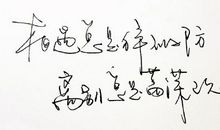 相遇总是猝不及防
离别总是蓄谋已久